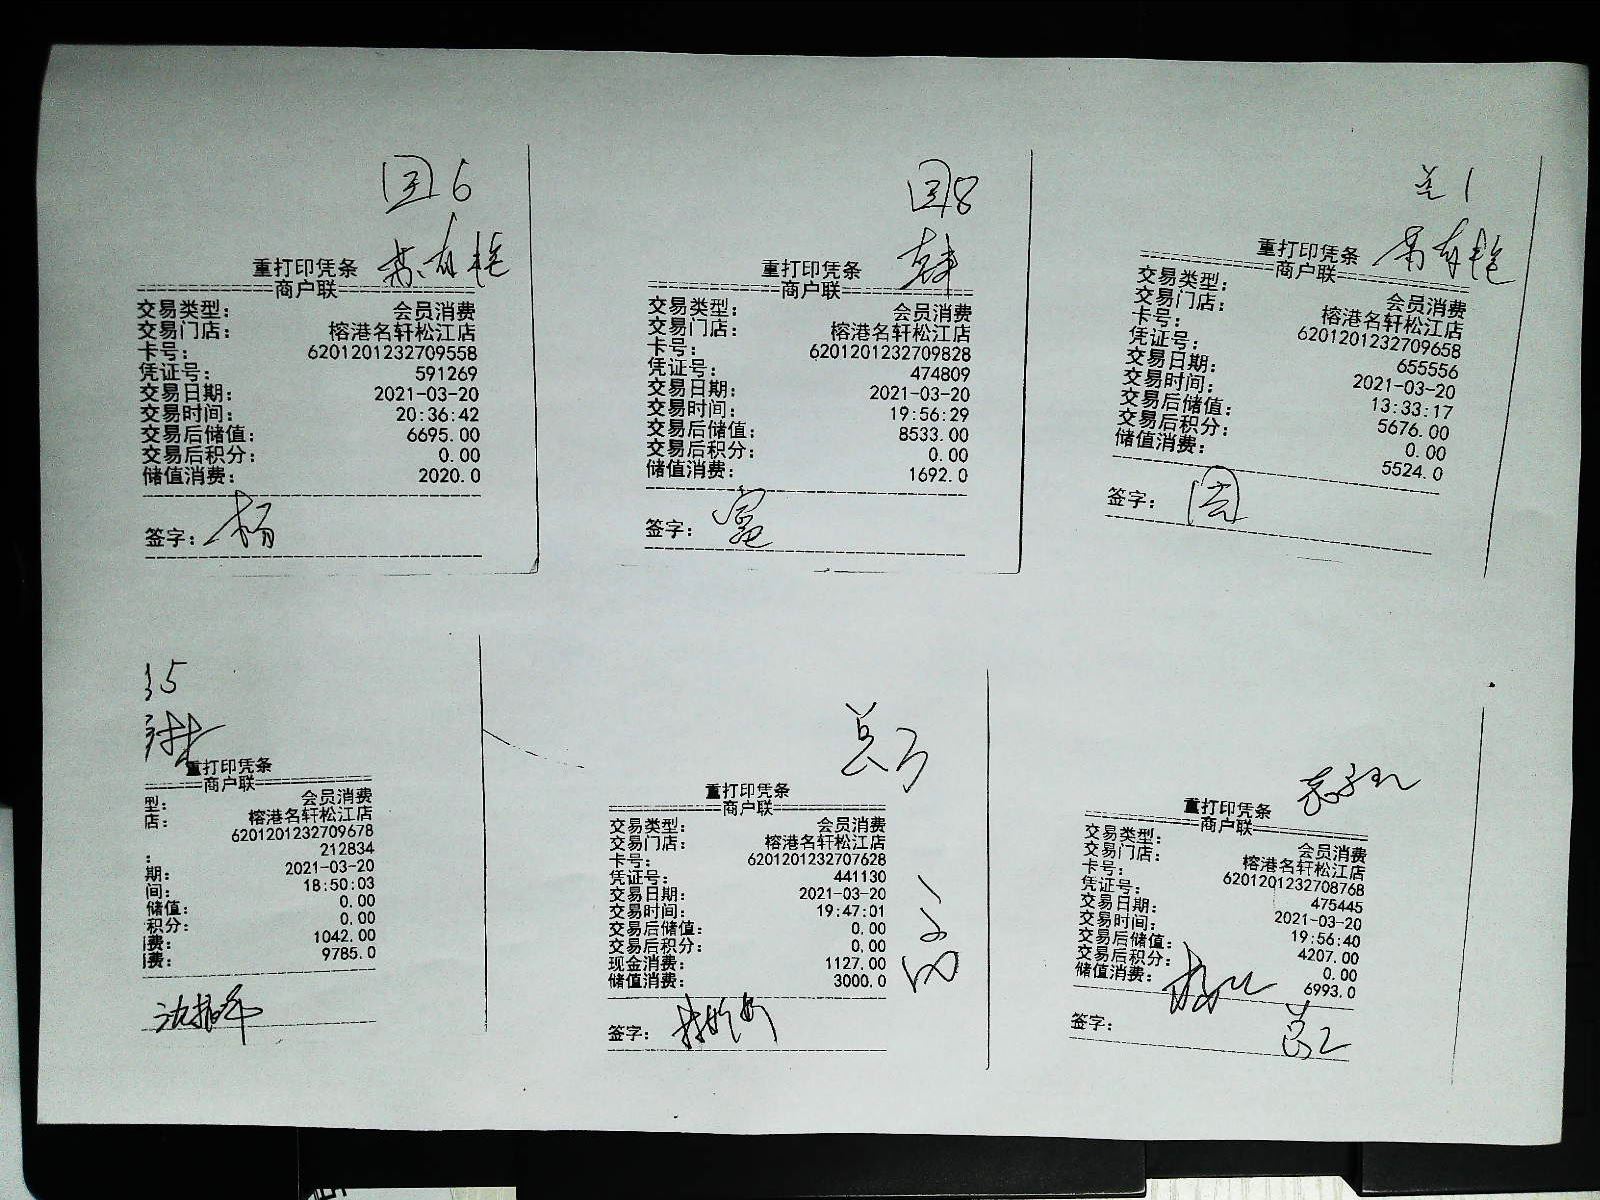 国6
重打印凭条
商户联
交易类型: 会员消费
交易门店: 榕港名轩松江店
卡号: 6201201232709558
凭证号: 591269
交易日期: 2021-03-20
交易时间: 20:36:42
交易后储值: 6695.00
交易后积分: 0.00
储值消费: 2020.0
签字: 杨
国8
韩
重打印凭条
商户联
交易类型: 会员消费
交易门店: 榕港名轩松江店
卡号: 6201201232709828
凭证号: 474809
交易日期: 2021-03-20
交易时间: 19:56:29
交易后储值: 8533.00
交易后积分: 0.00
储值消费: 1692.0
签字:
兰1
重打印凭条
商户联
交易类型: 会员消费
交易门店: 榕港名轩松江店
卡号: 6201201232709658
凭证号: 655556
交易日期: 2021-03-20
交易时间: 13:33:17
交易后储值: 5676.00
交易后积分: 0.00
储值消费: 5524.0
签字:
5
重打印凭条
商户联
型: 会员消费
店: 榕港名轩松江店
6201201232709678
: 212834
期: 2021-03-20
间: 18:50:03
储值: 0.00
积分: 0.00
费: 1042.00
费: 9785.0
重打印凭条
商户联
交易类型: 会员消费
交易门店: 榕港名轩松江店
卡号: 6201201232707628
凭证号: 441130
交易日期: 2021-03-20
交易时间: 19:47:01
交易后储值: 0.00
交易后积分: 0.00
现金消费: 1127.00
储值消费: 3000.0
签字:
重打印凭条
商户联
交易类型: 会员消费
交易门店: 榕港名轩松江店
卡号: 6201201232708768
凭证号: 475445
交易日期: 2021-03-20
交易时间: 19:56:40
交易后储值: 4207.00
交易后积分: 0.00
储值消费: 6993.0
签字: